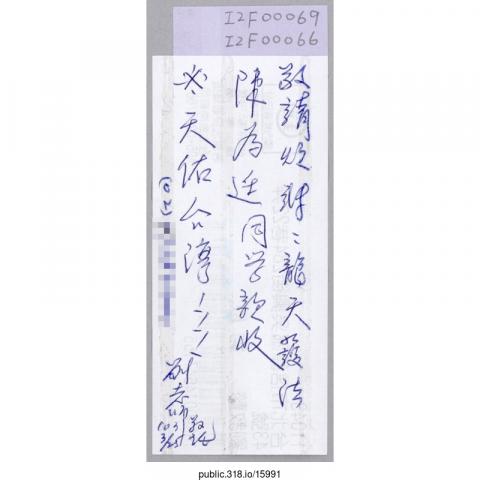 I2F00069
I2F00066
敬請
龍天護法
陳為廷同学敬收
天佑台灣
(120)
劉老師敬託
103
3/25
public.318.io/15991